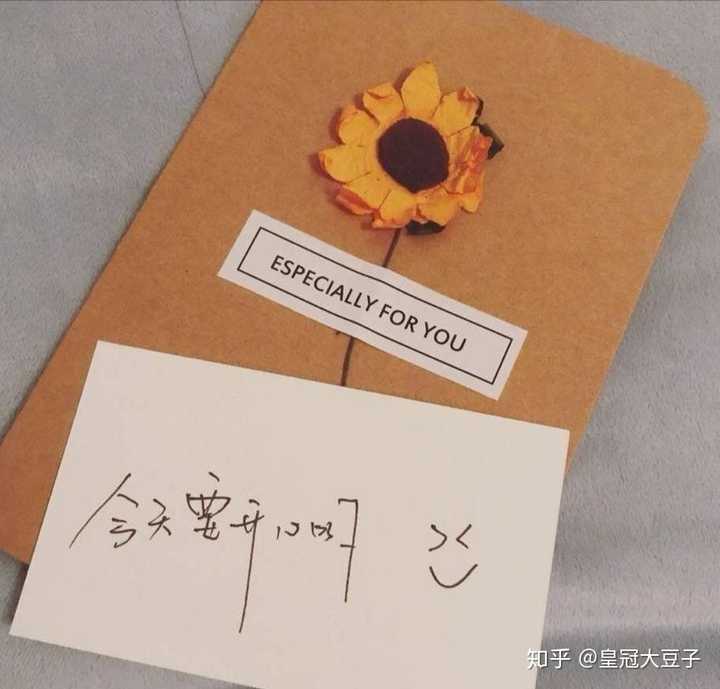 ESPECIALLY FOR YOU
今天要开心哦
知乎 @皇冠大豆子